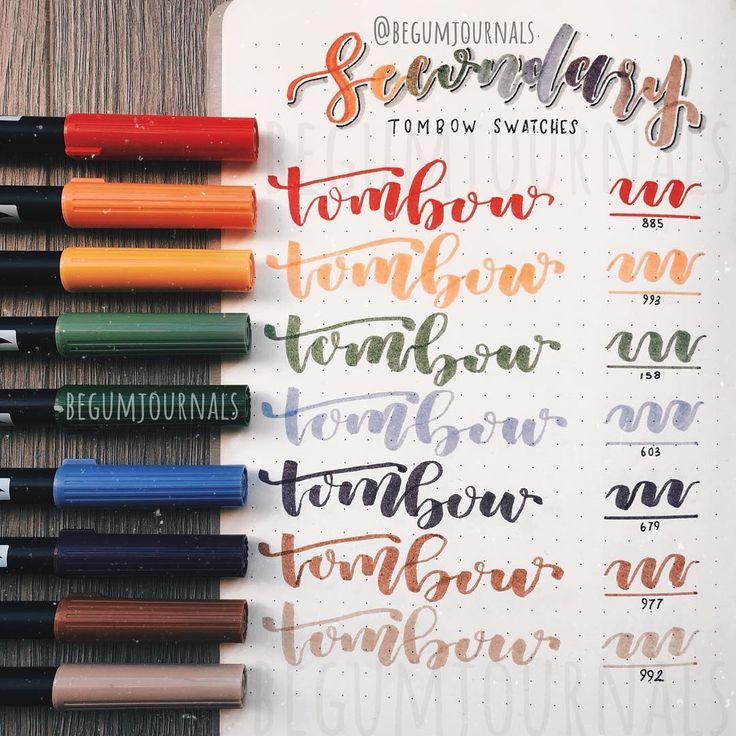 @BEGUMJOURNALS
Secondary
TOMBOW SWATCHES
BEGUMJOURNALS
tombow
885
tombow
993
tombow
158
BEGUMJOURNALS
tombow
603
tombow
679
tombow
977
tombow
992
BEGUMJOURNALS